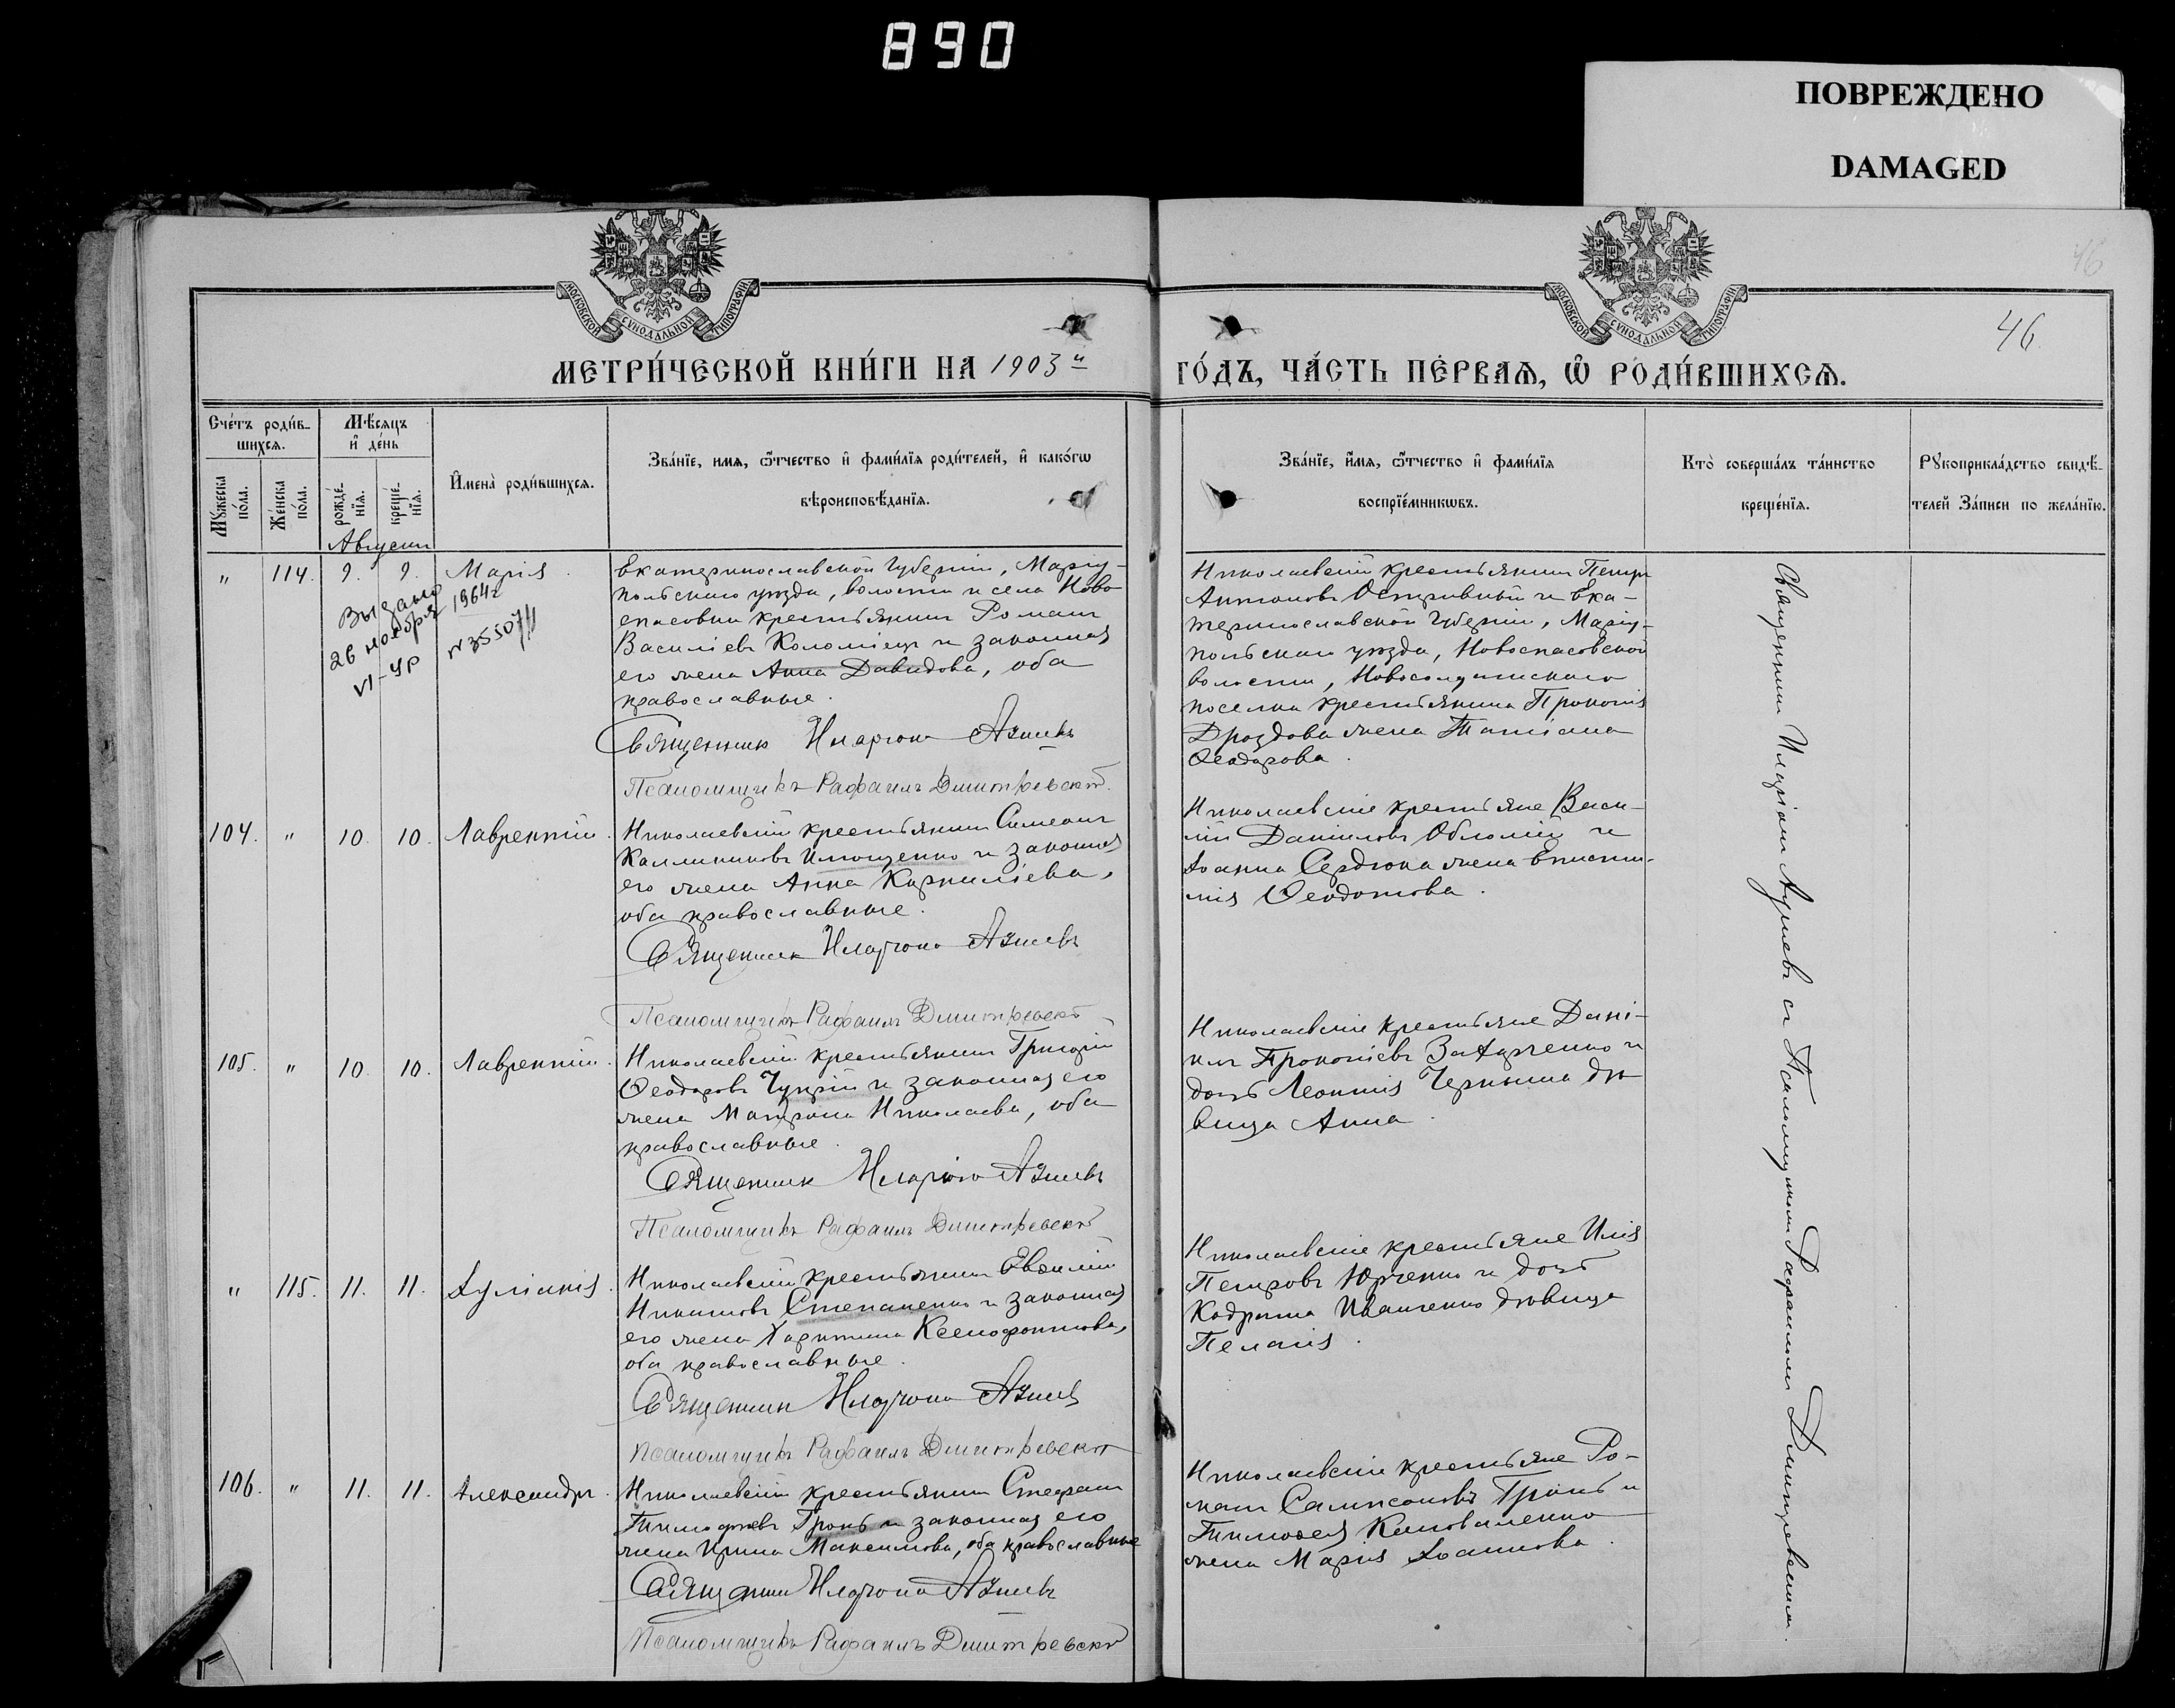 890
ПОВРЕЖДЕНО
DAMAGED
МОСКОВСКОЙ СѴНОДАЛЬНОЙ ТИПОГРАФІИ
МОСКОВСКОЙ СѴНОДАЛЬНОЙ ТИПОГРАФІИ
46
46.
МЕТРИ́ЧЕСКОЙ КНИ́ГИ НА 1903й
ГО́ДЪ, ЧА́СТЬ ПЕ́РВАѦ, Ѡ РОДИ́ВШИХСѦ.
Сче́тъ роди́в-
шихсѧ.
Мꙋ́жеска по́ла.
Же́нска по́ла.
Мѣ́сѧцъ
и҆ де́нь
рожде́-
нїѧ.
креще́-
нїѧ.
И҆мена̀ роди́вшихсѧ.
Зва́нїе, имѧ, ѻ҆́тчество и҆ фами́лїѧ роди́телей, и҆ како́гѡ
вѣроисповѣ́данїѧ.
Зва́нїе, и҆́мѧ, ѻ҆́тчество и҆ фами́лїѧ
воспрїе́мникѡвъ.
Кто̀ соверша́лъ та́инство
креще́нїѧ.
Рꙋкоприкла́дство свидѣ́-
телей За́писи по жела́нїю.
Августъ
" 114. 9. 9. Марія
Выдано
26 ноября 1964г
VI-УР № 355071
Екатеринославской губерніи, Маріу-
польскаго уѣзда, волости и села Ново-
спасовки крестьянинъ Романъ
Василіевъ Коломіецъ и законная
его жена Анна Давидова, оба
православные.
Священникъ Иларіонъ
Псаломщикъ Рафаилъ Дмитревскій
Николаевскій крестьянинъ Петръ
Антоновъ и Ека-
теринославской губерніи, Маріу-
польскаго уѣзда, Новоспасовской
волости, Новосолдатскаго
поселка крестьянина Прокопія
Дроздова жена Татіана
Ѳеодорова.
104. " 10. 10. Лаврентій.
Николаевскій крестьянинъ Симеонъ
Каллиниковъ и законная
его жена Анна Корниліева,
оба православные.
Священникъ Иларіонъ
Псаломщикъ Рафаилъ Дмитревскій
Николаевскіе крестьяне Васи-
лій Даніиловъ и
Іоанна Сердюка жена Еписти-
мія Ѳеодотова.
105. " 10. 10. Лаврентій.
Николаевскій крестьянинъ Григорій
Ѳеодоровъ и законная его
жена Матрона Николаева, оба
православные.
Священникъ Иларіонъ
Псаломщикъ Рафаилъ Дмитревскій
Николаевскіе крестьяне Дані-
илъ Прокопіевъ Захарченко и
дочь Леонтія Черныша дѣ-
вица Анна.
" 115. 11. 11. Іуліанія.
Николаевскій крестьянинъ
Никитовъ Степаненко и законная
его жена Харитина Ксенофонтова,
оба православные.
Священникъ Иларіонъ
Псаломщикъ Рафаилъ Дмитревскій
Николаевскіе крестьяне Илія
Петровъ Юрченко и дочь
Кодрата Иванченко дѣвица
Пелагія.
106. " 11. 11. Александръ.
Николаевскій крестьянинъ Стефанъ
Тимоѳеевъ и законная его
жена Ирина Максимова, оба православные
Священникъ Иларіонъ
Псаломщикъ Рафаилъ Дмитревскій
Николаевскіе крестьяне Ро-
манъ Сампсоновъ и
Тимоѳея Коноваленко
жена Марія Іоаннова.
Священникъ Иларіонъ съ Псаломщикомъ Рафаиломъ Димитревскимъ.